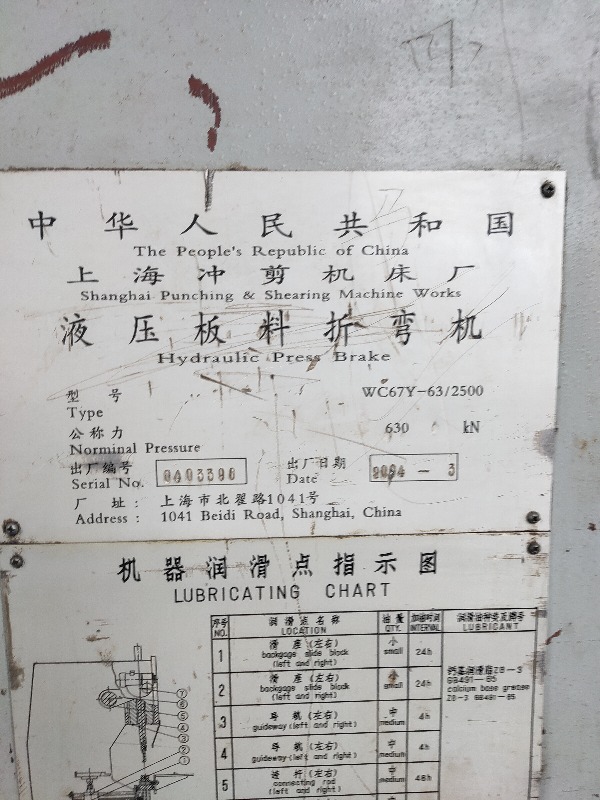 中华人民共和国
The People's Republic of China
上海冲剪机床厂
Shanghai Punching & Shearing Machine Works
液压板料折弯机
Hydraulic Press Brake
型 号 WC67Y-63/2500
Type
公称力 630 kN
Norminal Pressure
出厂编号 出厂日期
Serial No. Date
厂 址: 上海市北翟路1041号
Address: 1041 Beidi Road, Shanghai, China
机器润滑点指示图
LUBRICATING CHART
序号 润滑点名称 油量 加油时间 润滑油种类及牌号
NO. LOCATION QTY. INTERVAL LUBRICANT
1 滑座(左右) 小 24h
backgage slide block small
(left and right)
2 滑座(左右) 小 24h 钙基润滑脂ZG-3
backgage slide block small GB491-65
(left and right) calcium base grease
ZG-3 GB491-65
3 导轨(左右) 中 4h
guideway(left and right) medium
4 导轨(左右) 中 4h
guideway(left and right) medium
5 连杆(左右) 中 48h
connecting rod medium
(left and right)
7
6
5
4
3
2
1